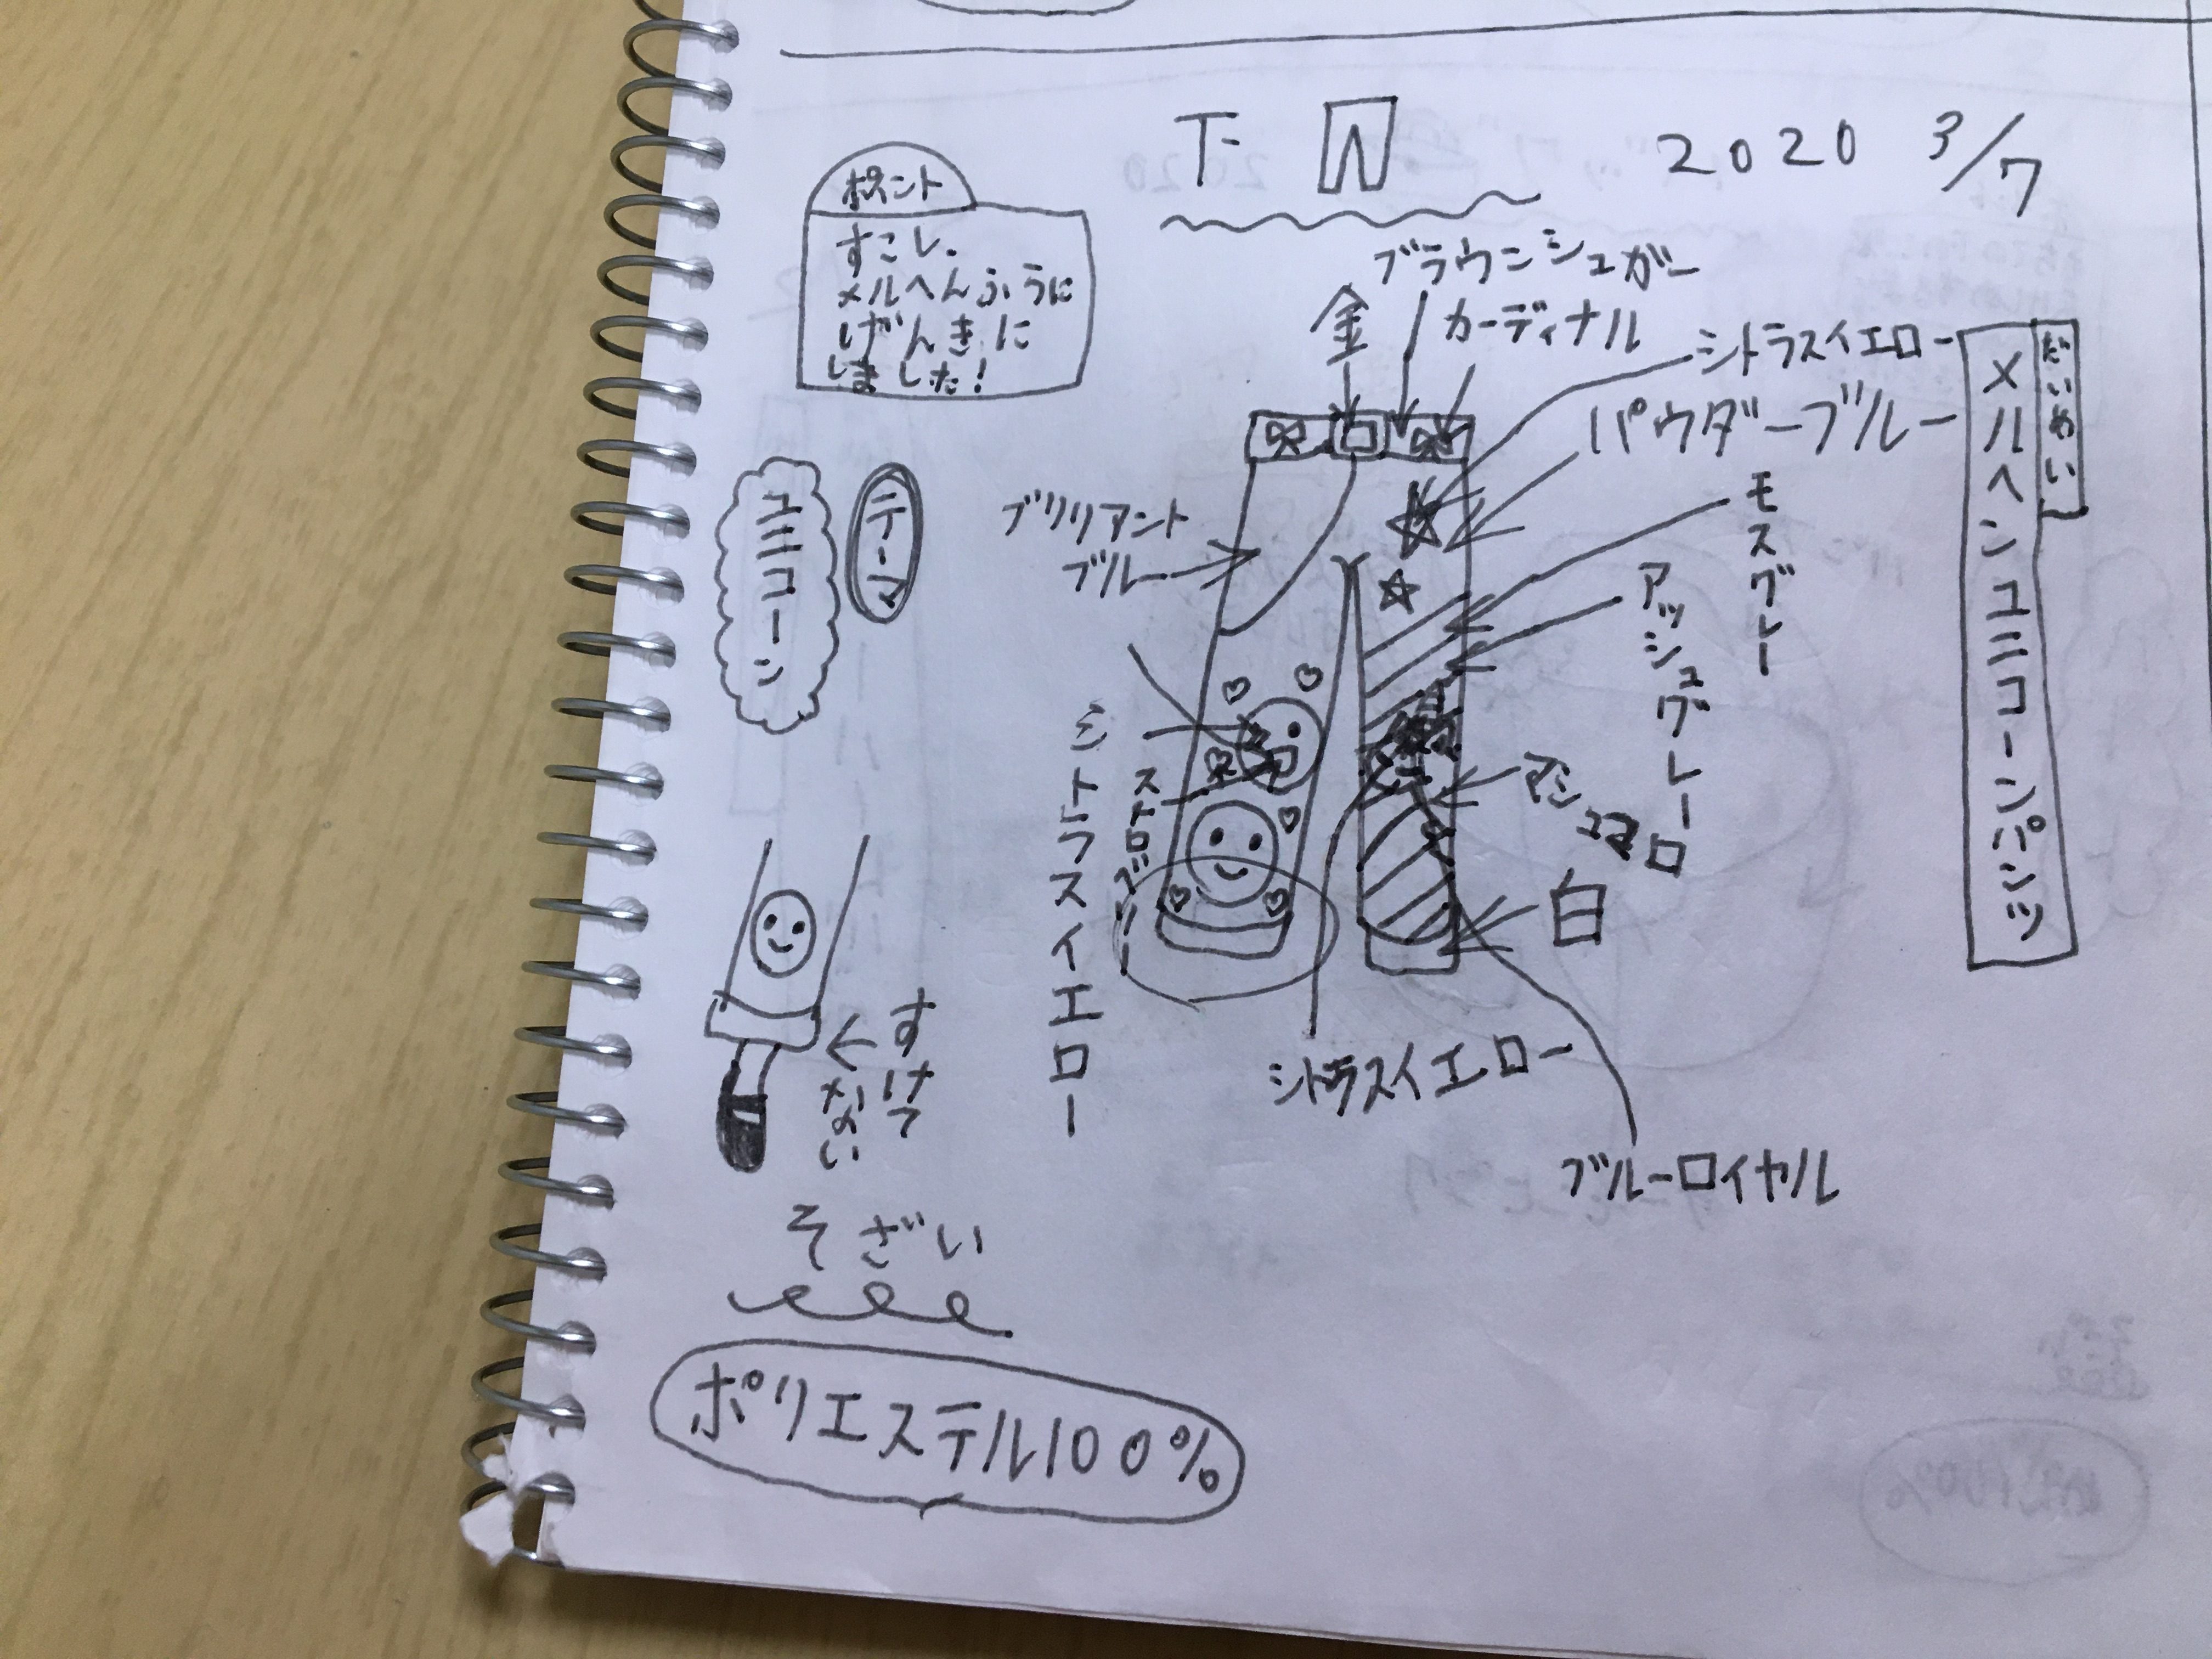 下 2020 3/7
ポイント
すこし、
メルヘんふうに
げんきに
しました!
ブラウンシュガー
金
カーディナル
シトラスイエロー
パウダーブルー
だいめい
メルヘンユニコーンパンツ
モスグレー
アッシュグレー
テーマ
ユニコーン
ブリリアント
ブルー
シトラスイエロー
ストロベリー
マシュマロ
白
シトラスイエロー
ブルーロイヤル
すけて
ない
そざい
ポリエステル100%